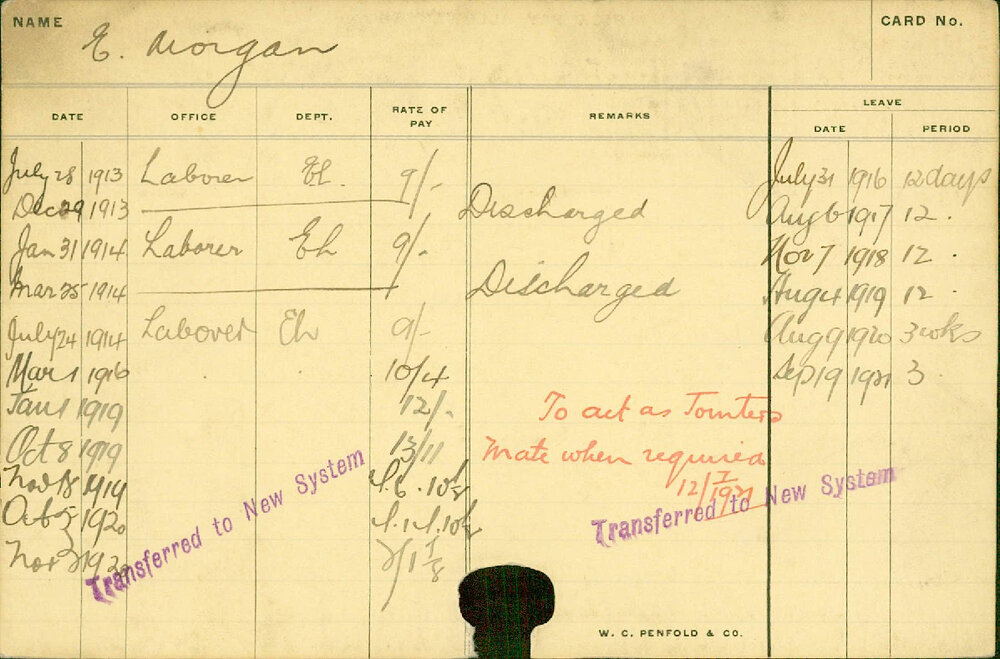 NAME E. Morgan CARD No.
DATE OFFICE DEPT. RATE OF PAY REMARKS LEAVE
DATE PERIOD
July 28 1913 Laborer El. 9/- July 31 1916 12 days
Dec 29 1913 Discharged Aug 6 1917 12 .
Jan 31 1914 Laborer El 9/- Nov 7 1918 12 .
Mar 25 1914 Discharged Aug 4 1919 12 .
July 24 1914 Laborer El 9/- Aug 9 1920 3 wks
Mar 1 1916 . . 10/4 Sep 19 1921 3 .
Jan 1 1919 12/-
To act as Jointers
Oct 8 1919 13/11
Mate when required
Nov 18 1919
12/7/1921
Oct 1920
Nov 1920
Transferred to New System
Transferred to New System
W. C. PENFOLD & CO.